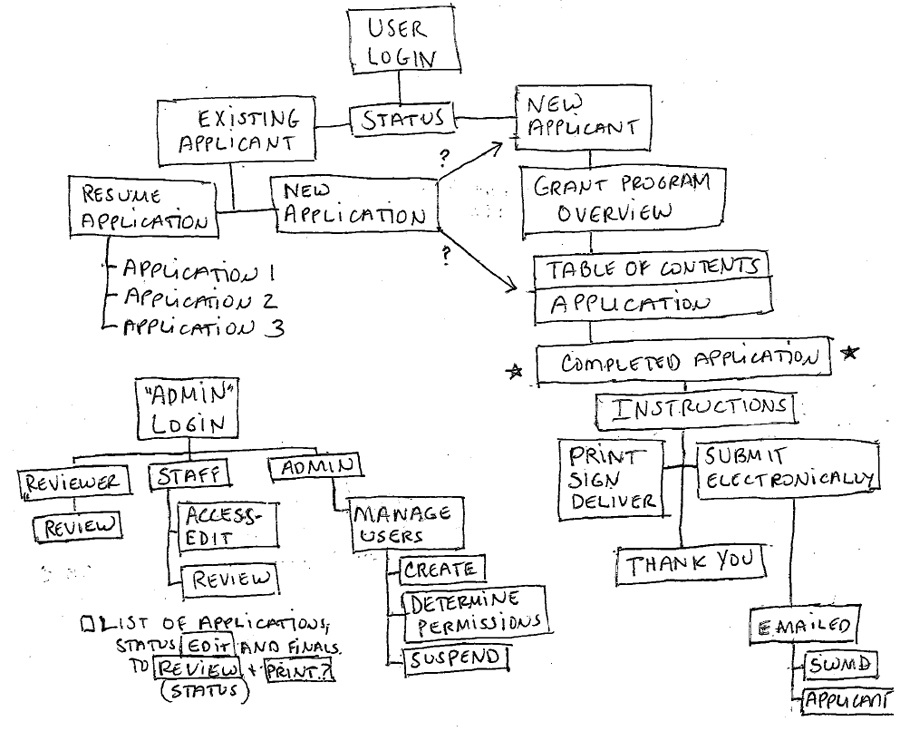 USER
LOGIN
EXISTING
APPLICANT
STATUS
NEW
APPLICANT
RESUME
APPLICATION
NEW
APPLICATION
?
?
GRANT PROGRAM
OVERVIEW
APPLICATION 1
APPLICATION 2
APPLICATION 3
TABLE OF CONTENTS
APPLICATION
COMPLETED APPLICATION
INSTRUCTIONS
PRINT
SIGN
DELIVER
SUBMIT
ELECTRONICALLY
THANK YOU
EMAILED
SWMD
APPLICANT
"ADMIN"
LOGIN
REVIEWER
REVIEW
STAFF
ACCESS-
EDIT
REVIEW
ADMIN
MANAGE
USERS
CREATE
DETERMINE
PERMISSIONS
SUSPEND
LIST OF APPLICATIONS,
STATUS EDIT AND FINALS
TO REVIEW + PRINT?
(STATUS)